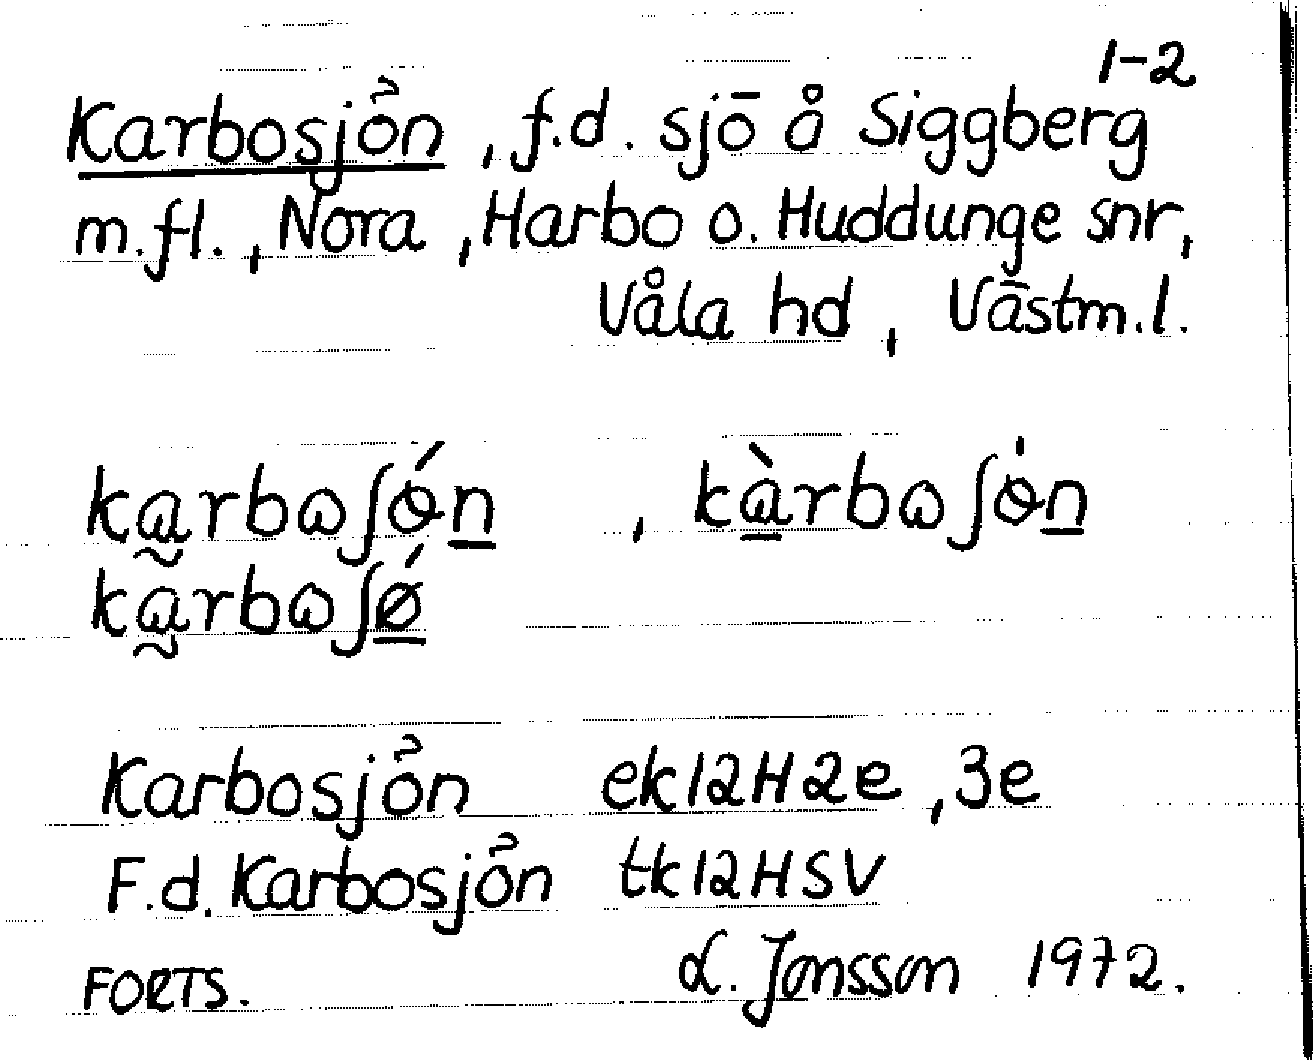 1-2
Karbosjön, f.d. sjö å Siggberg
m.fl., Nora, Harbo o. Huddunge snr,
Våla hd, Västm.l.
ka̰rbɷʃɵ́n̲, kà̲rbɷʃɵ̍n̲
ka̰rbɷʃǿ̲
Karbosjön ek12H2e, 3e
F.d. Karbosjön tk12HSV
FORTS. L. Jonsson 1972.